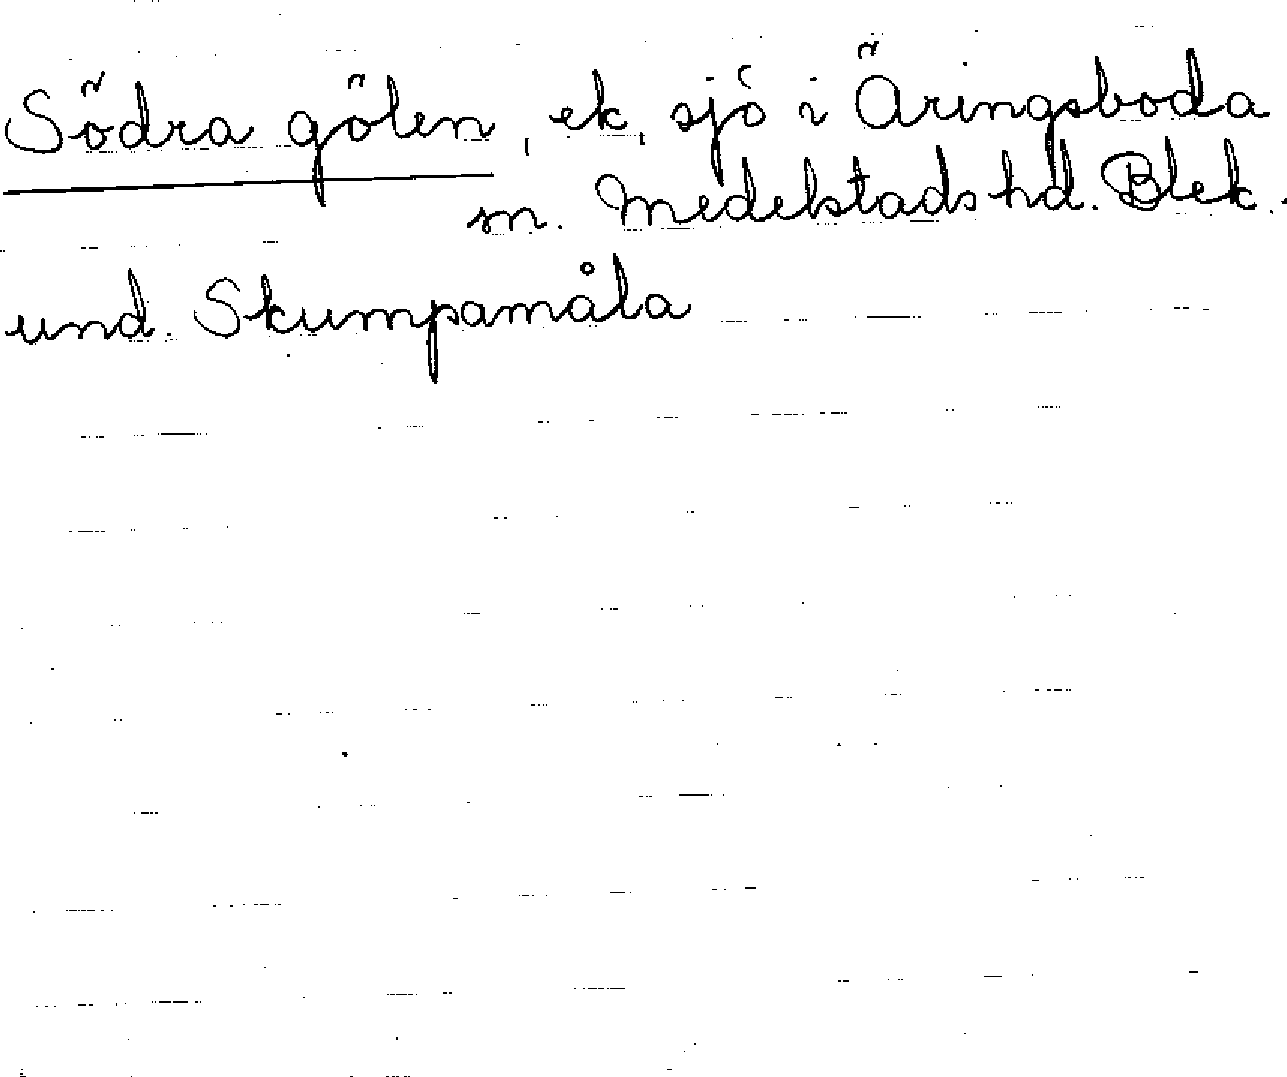 Södra gölen, ek, sjö i Äringsboda
m. Medelstads hd. Blek.
und. Skumpamåla